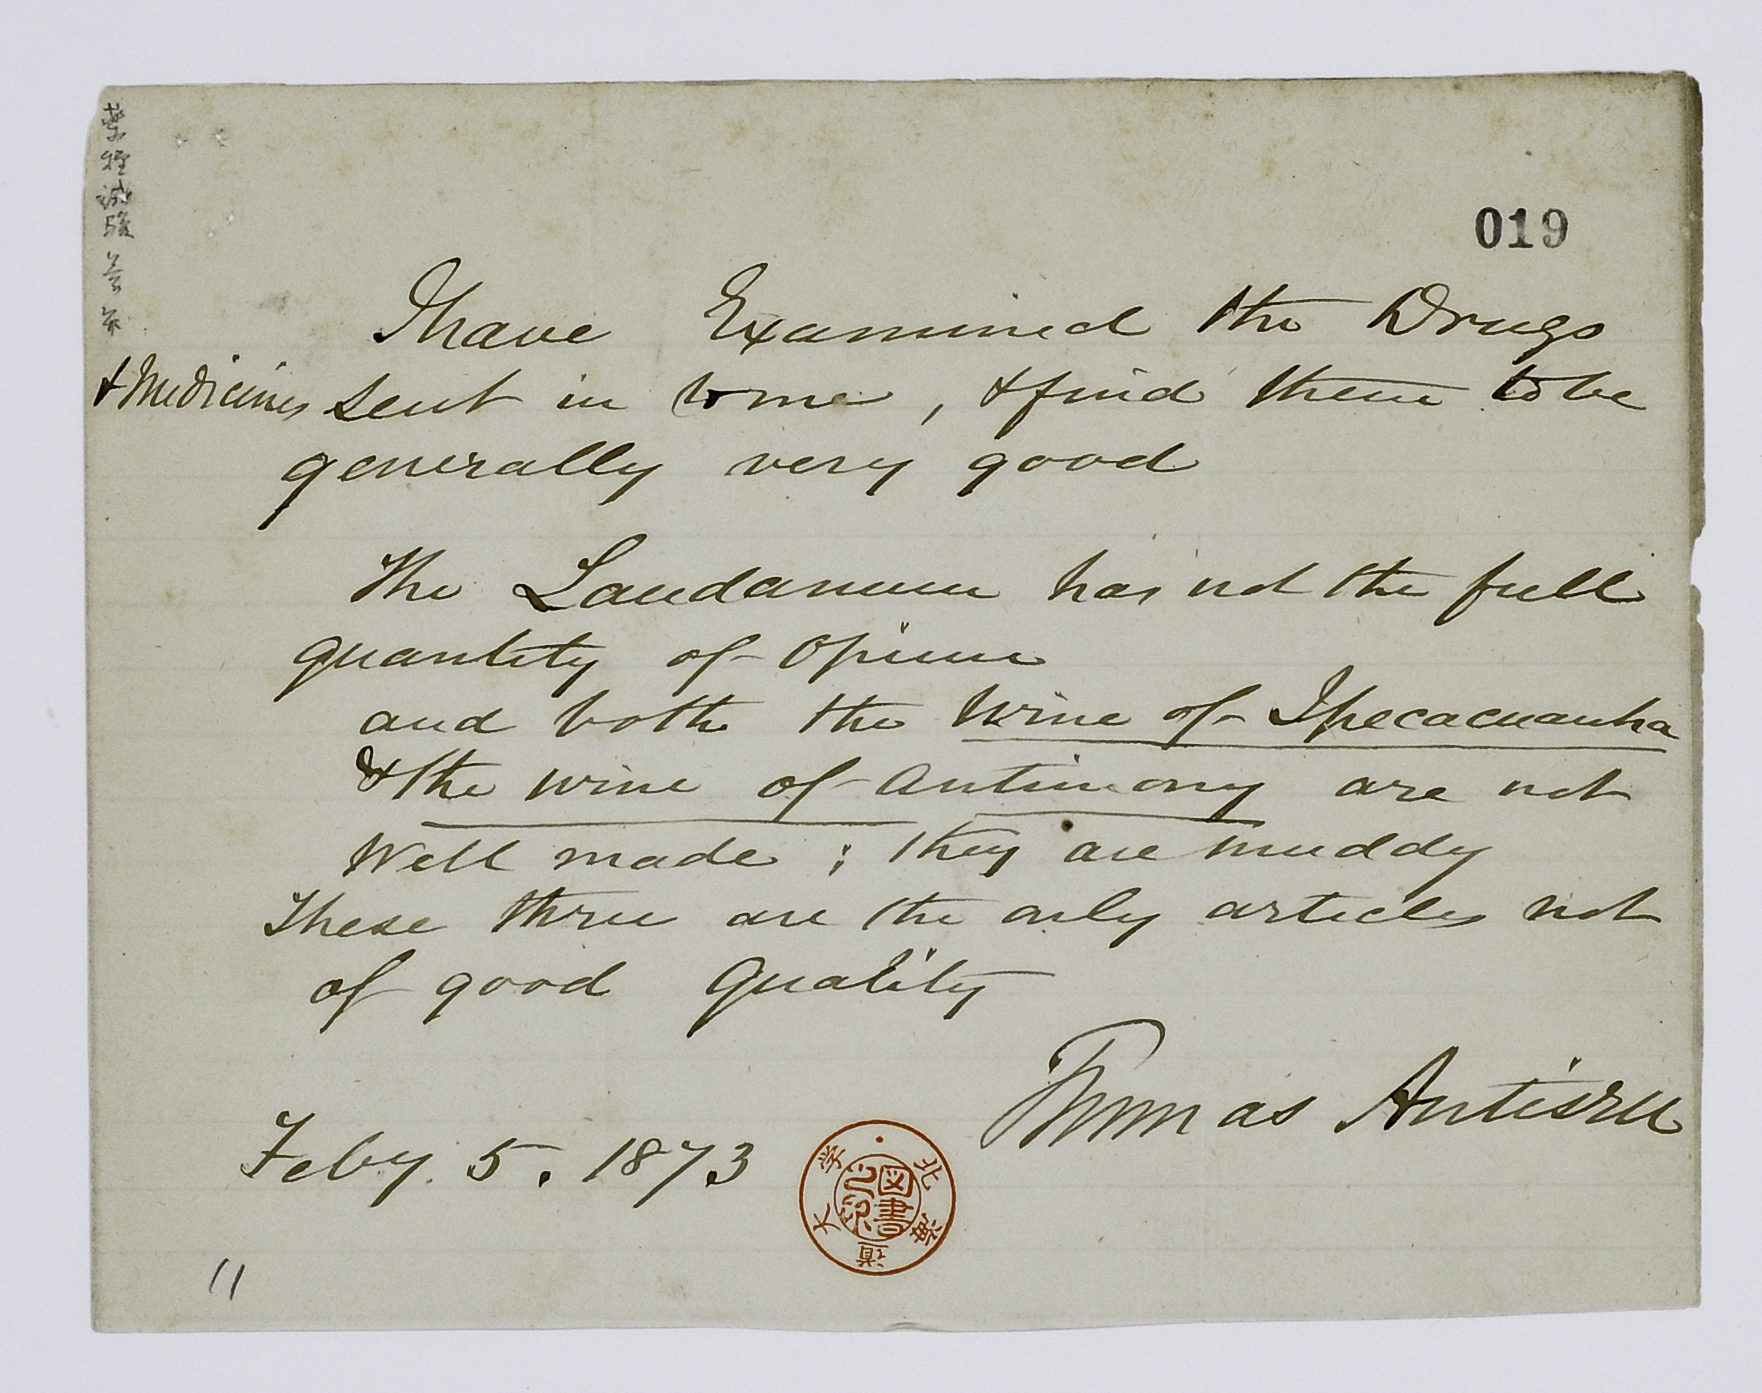 019
I have Examined the Drugs
& Medicines sent in to me, & find them to be
generally very good
The Laudanum has not the full
quantity of Opium
and both the Wine of Ipecacuanha
& the wine of Antimony are not
Well made; they are muddy
These three are the only articles not
of good Quality
Thomas Antisell
Feby. 5. 1873
北海道大学
図書